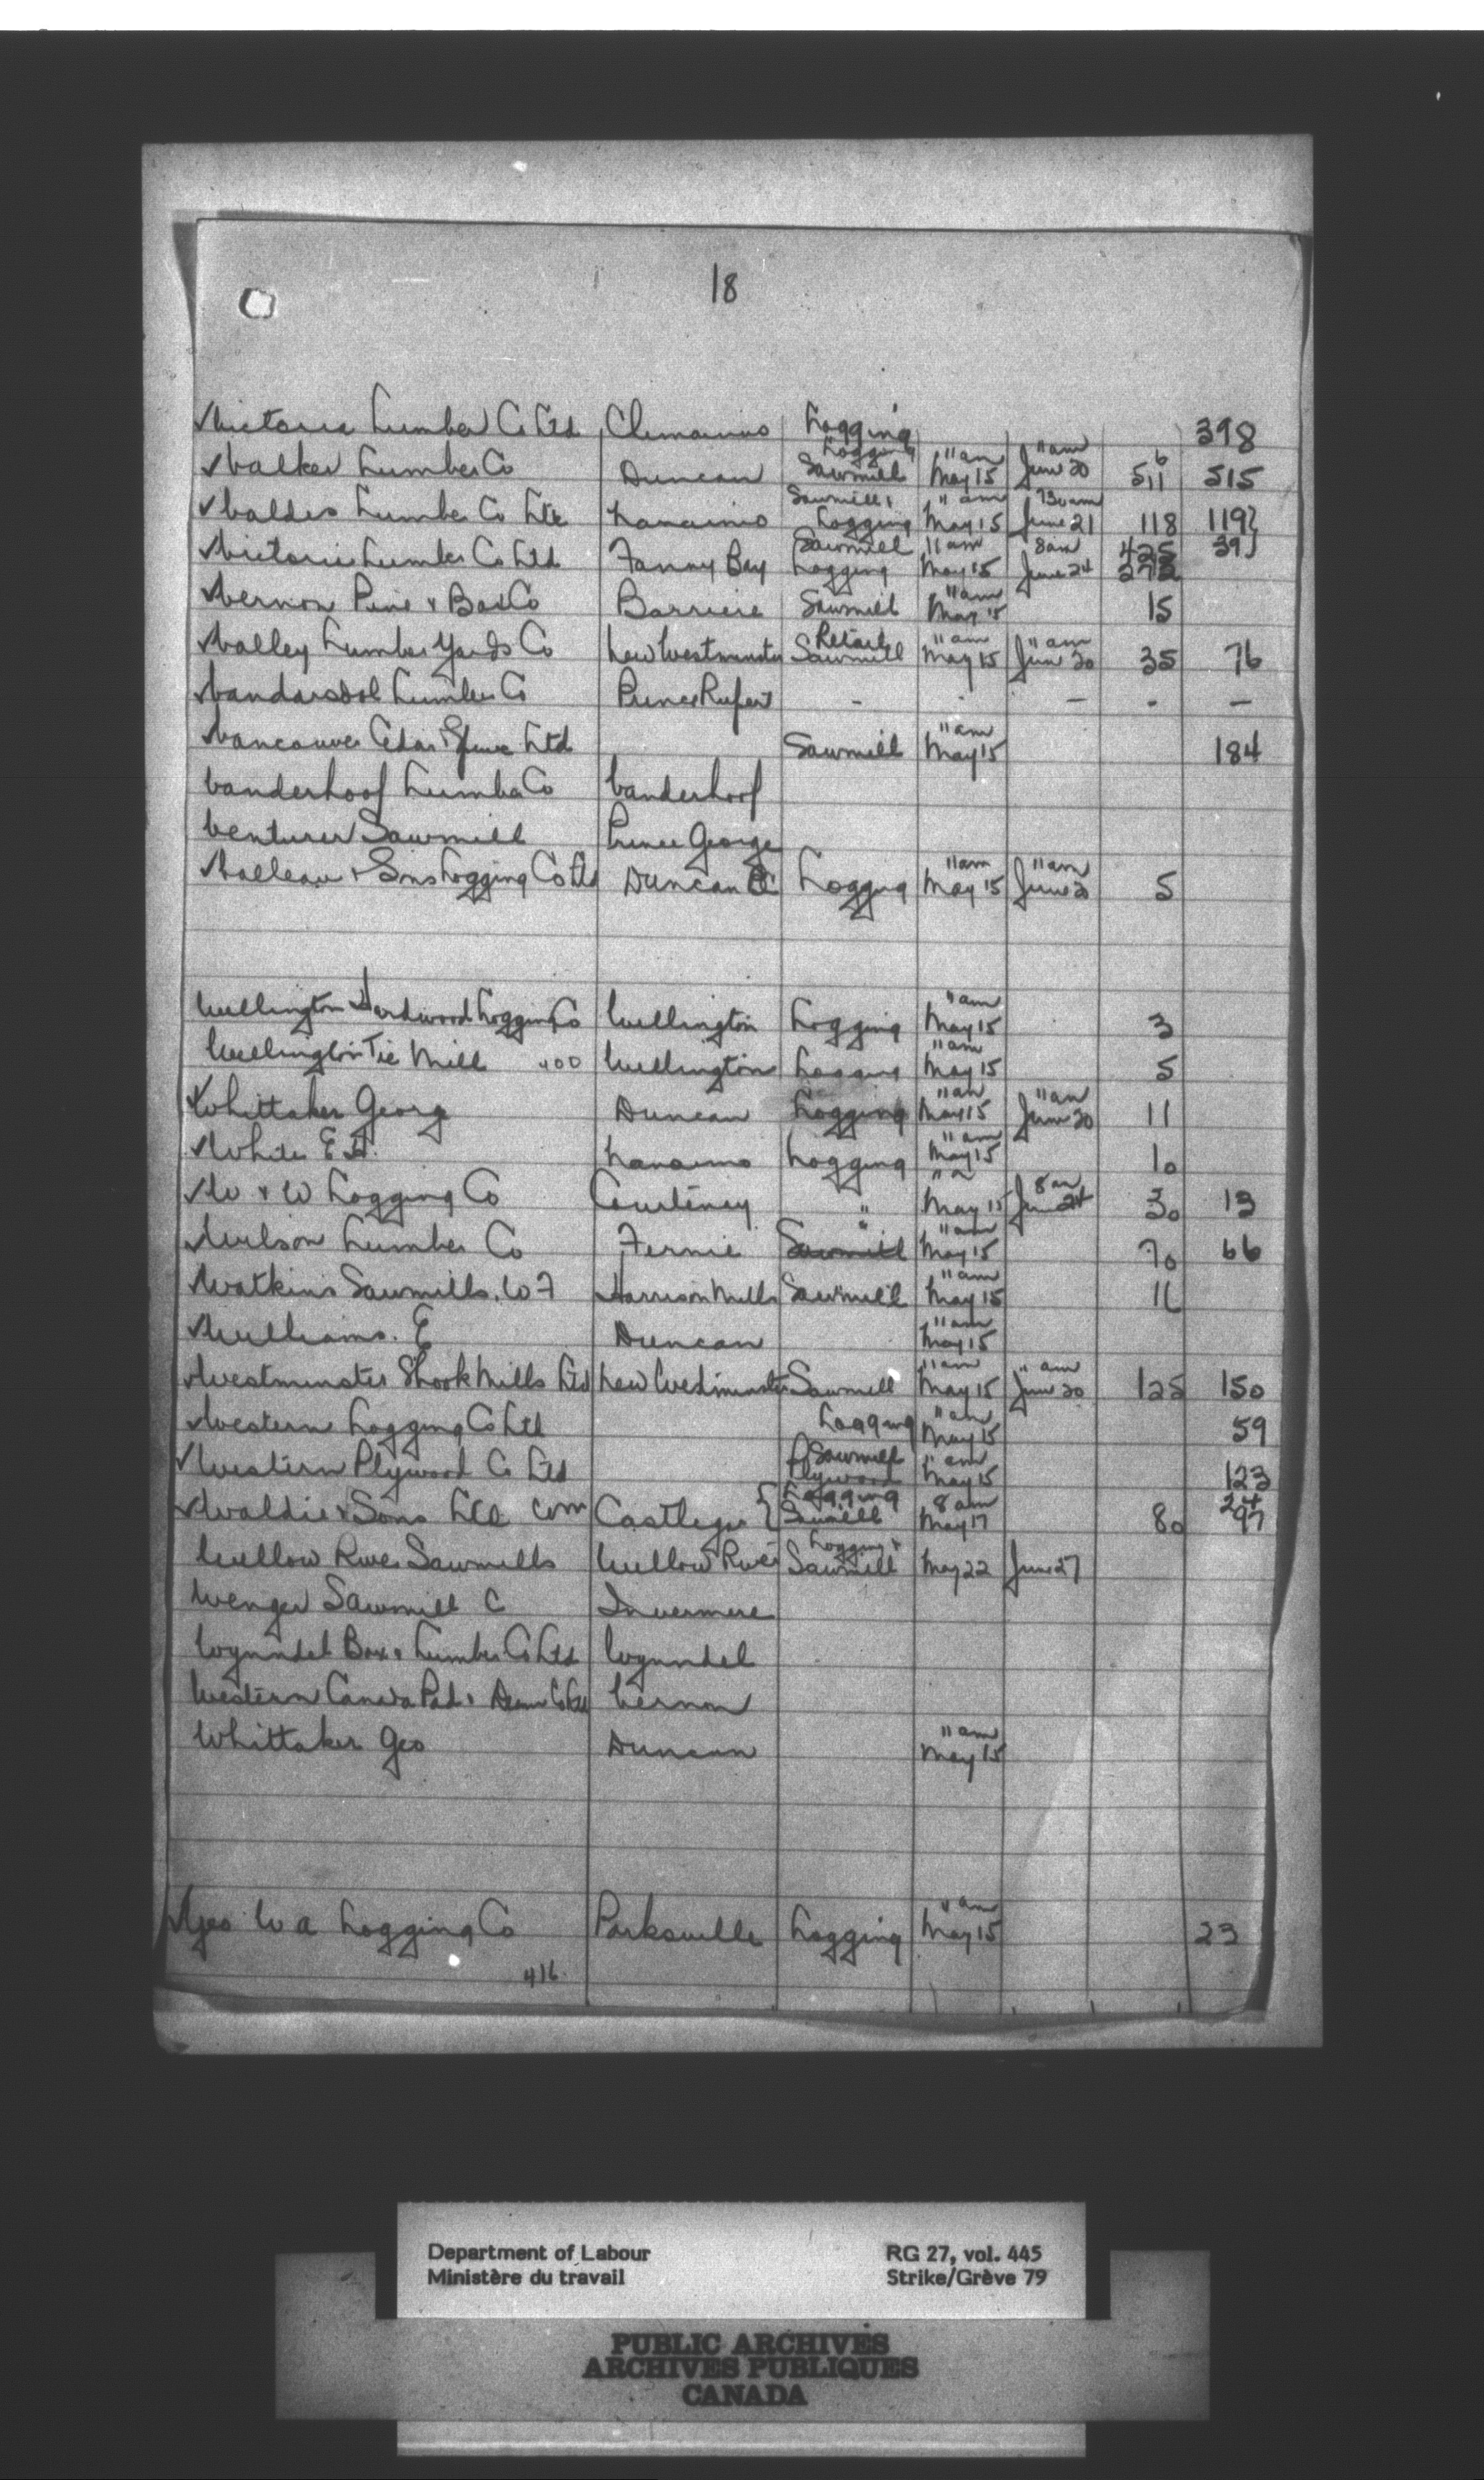 18
Victoria Lumber Co Ltd Chemainus Logging 398
Walker Lumber Co Duncan Logging Sawmill 11am May 15 11am June 20 6 511 515
Valdes Lumber Co Ltd Nanaimo Sawmill & Logging 11am May 15 730am June 21 118 119
Victoria Lumber Co Ltd Fanny Bay Sawmill Logging 11am May 15 8am June 24 425 272 39
Vernon Pine & Box Co Barriere Sawmill 11am May 15 15
Valley Lumber Yards Co New Westminster Retail Sawmill 11am May 15 11am June 20 35 76
Lumber Co Prince Rupert - - - - -
Vancouver Cedar & Spruce Ltd Sawmill 11am May 15 184
Vanderhoof Lumber Co Vanderhoof
Venturer Sawmill Prince George
& Sons Logging Co Ltd Duncan Logging 11am May 15 11am June 20 5
Wellington Hardwood Logging Co Wellington Logging 11am May 15 3
Wellington Tie Mill 400 Wellington Logging 11am May 15 5
Whittaker George Duncan Logging 11am May 15 11am June 20 11
White E H. Nanaimo Logging 11am May 15 10
W & W Logging Co Courtenay " May 15 8am June 24 30 13
Wilson Lumber Co Fernie " Sawmill 11am May 15 70 66
Watkins Sawmills, W F Harrison Mills Sawmill 11am May 15 11
Williams. E Duncan 11am May 15
Westminster Shook Mills Ltd New Westminster Sawmill 11am May 15 11am June 20 125 150
Western Logging Co Ltd Logging 11am May 15 59
Western Plywood Co Ltd Sawmill Plywood 11am May 15 123
Waldie & Sons Ltd Wm Castlegar { Logging Sawmill 8am May 17 80 24 297
Willow River Sawmills Willow River Logging & Sawmill May 22 June 27
Wenger Sawmill C Invermere
Wynndel Box & Lumber Co Ltd Wynndel
Western Canada Pad & Co Ltd Vernon
Whittaker Geo Duncan 11am May 15
Logging Co Parksville Logging 11am May 15 23
416.
Department of Labour
Ministère du travail
RG 27, vol. 445
Strike/Grève 79
PUBLIC ARCHIVES
ARCHIVES PUBLIQUES
CANADA